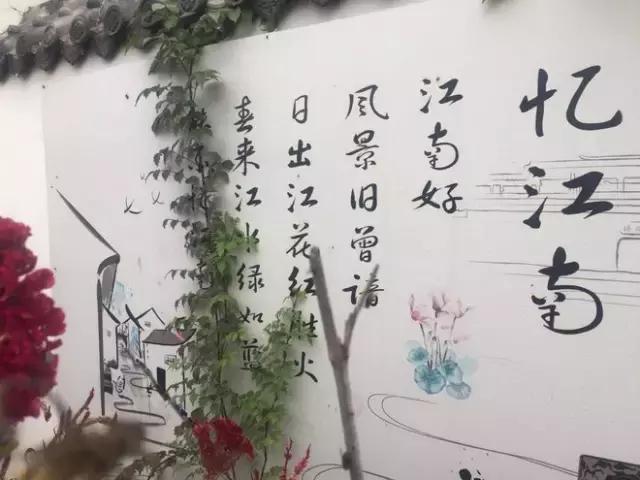 忆江南
江南好
風景旧曾谙
日出江花红胜火
春来江水绿如蓝